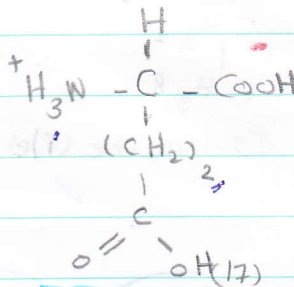 H
+
H3N - C - COOH
(CH2)2
C
O OH(17)